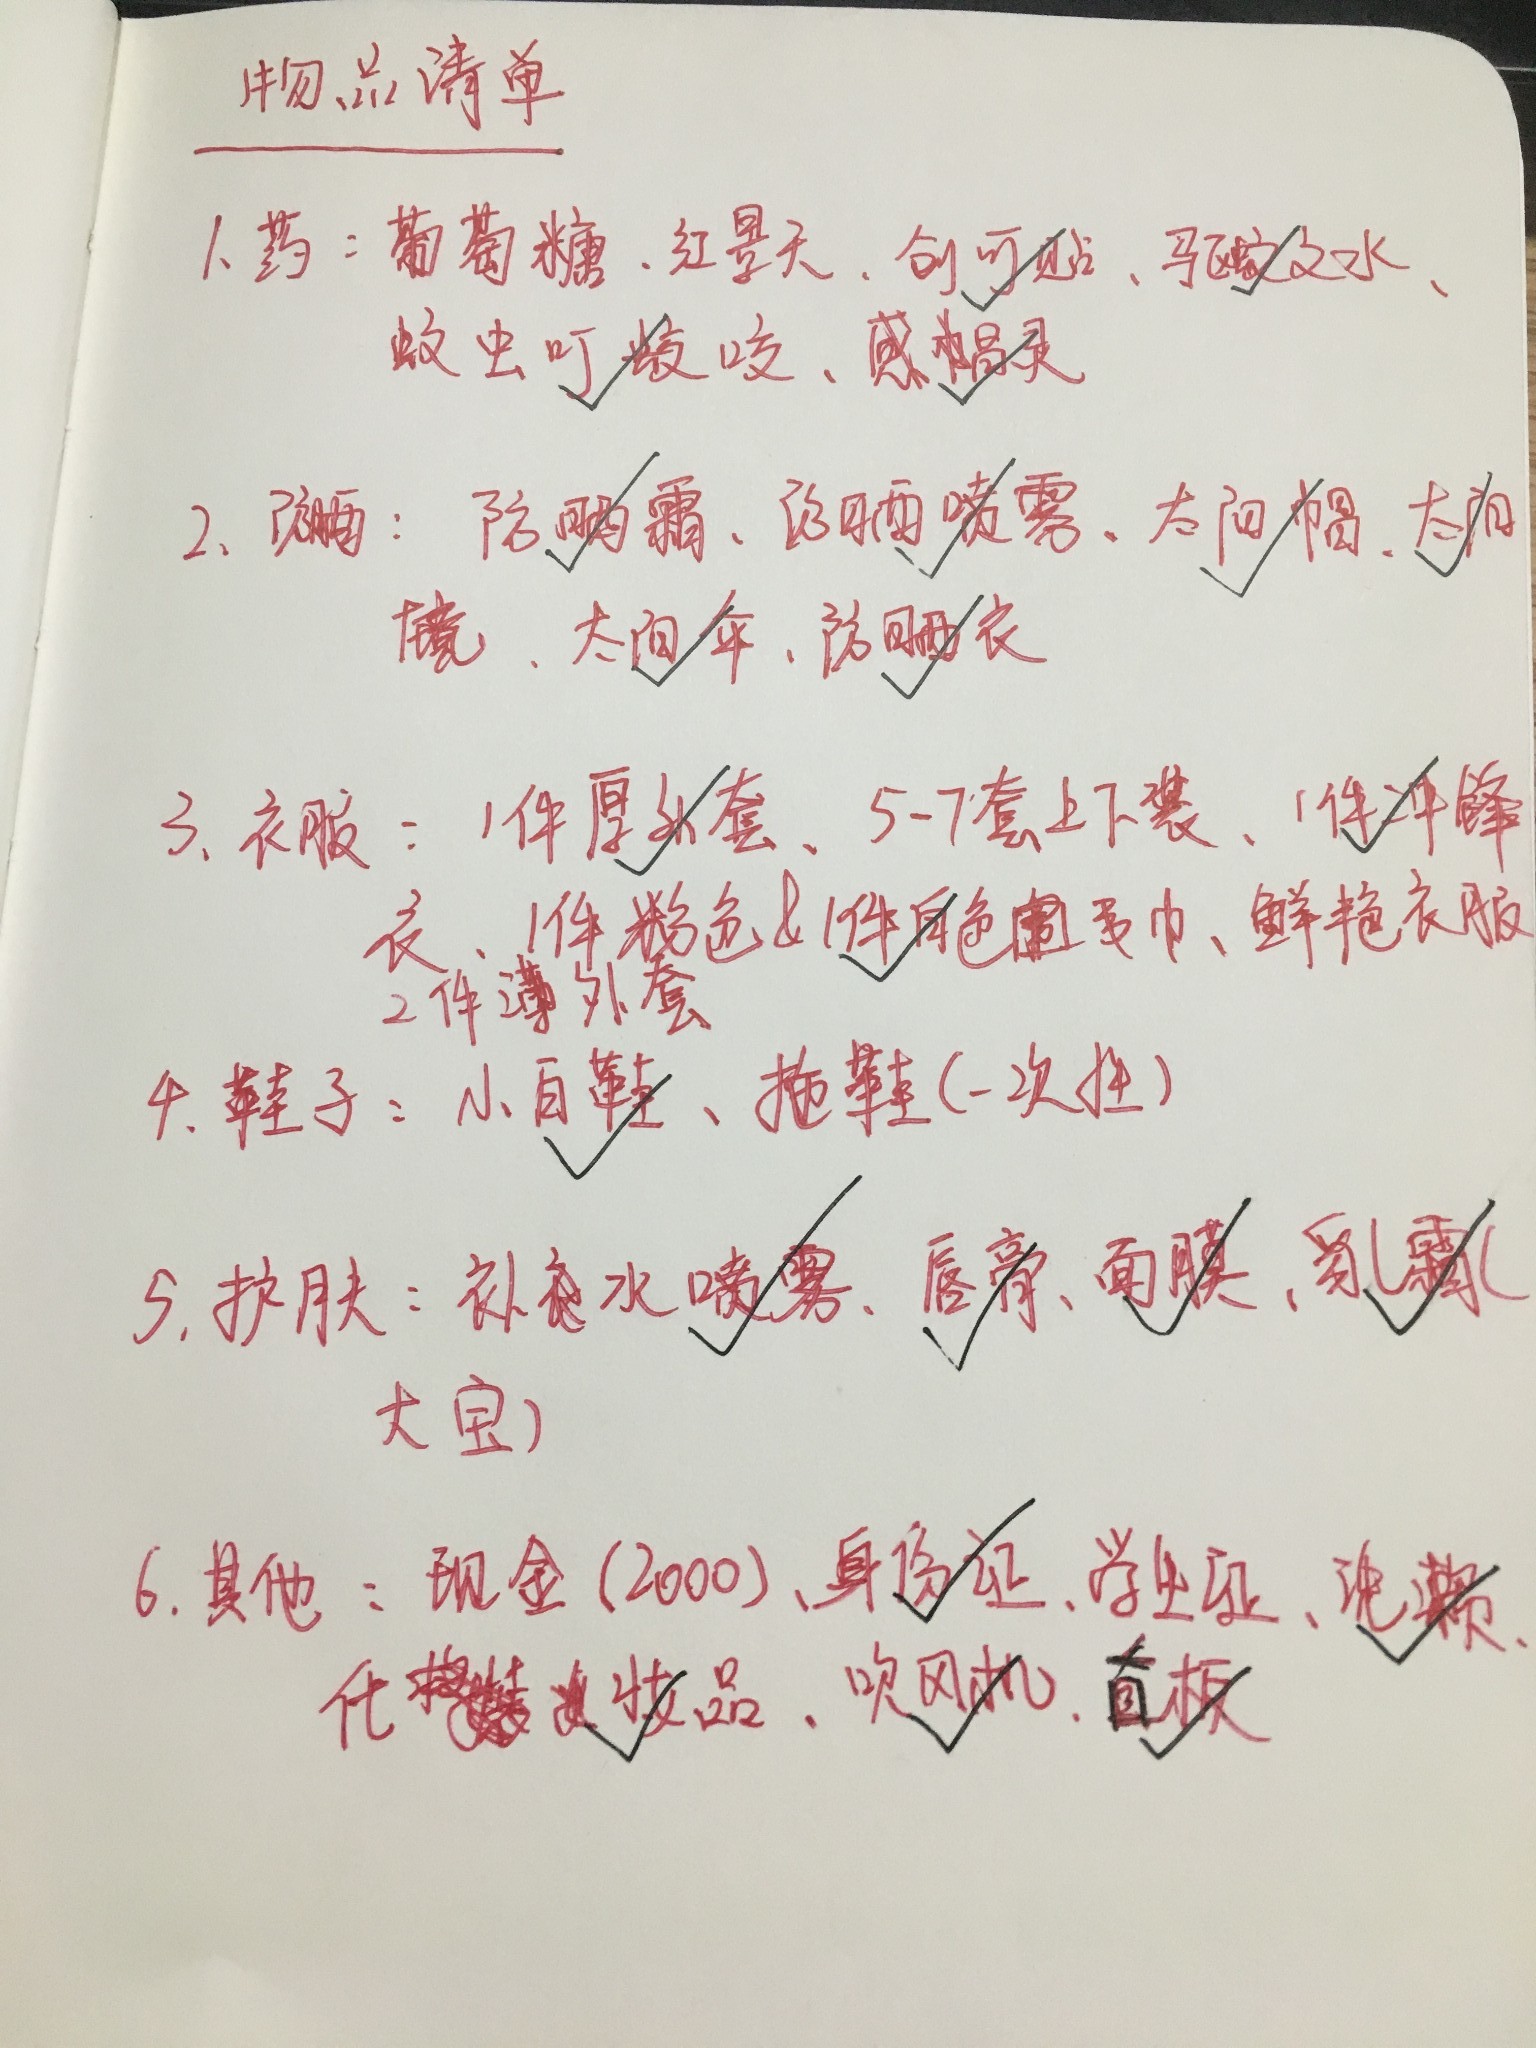 物品清单
1、药：葡萄糖、红景天、创可贴、驱蚊水、
蚊虫叮咬、感帽灵
2、防晒：防晒霜、防晒喷雾、太阳帽、太阳
境、太阳伞、防晒衣
3、衣服：1件厚外套、5-7套上下装、1件冲锋
衣、1件粉色&1件白色围巾、鲜艳衣服
2件薄外套
4、鞋子：小白鞋、拖鞋(一次性)
5、护肤：补水喷雾、唇膏、面膜、乳霜(
大宝)
6、其他：现金(2000)、身份证、学生证、洗漱、
化妆品、吹风机、直板